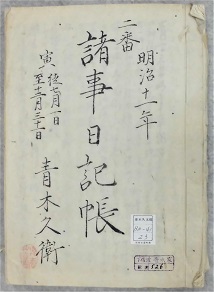 二番
明治十一年
諸事日記帳
寅
七月一日
至十二月三十一日
青木久衛